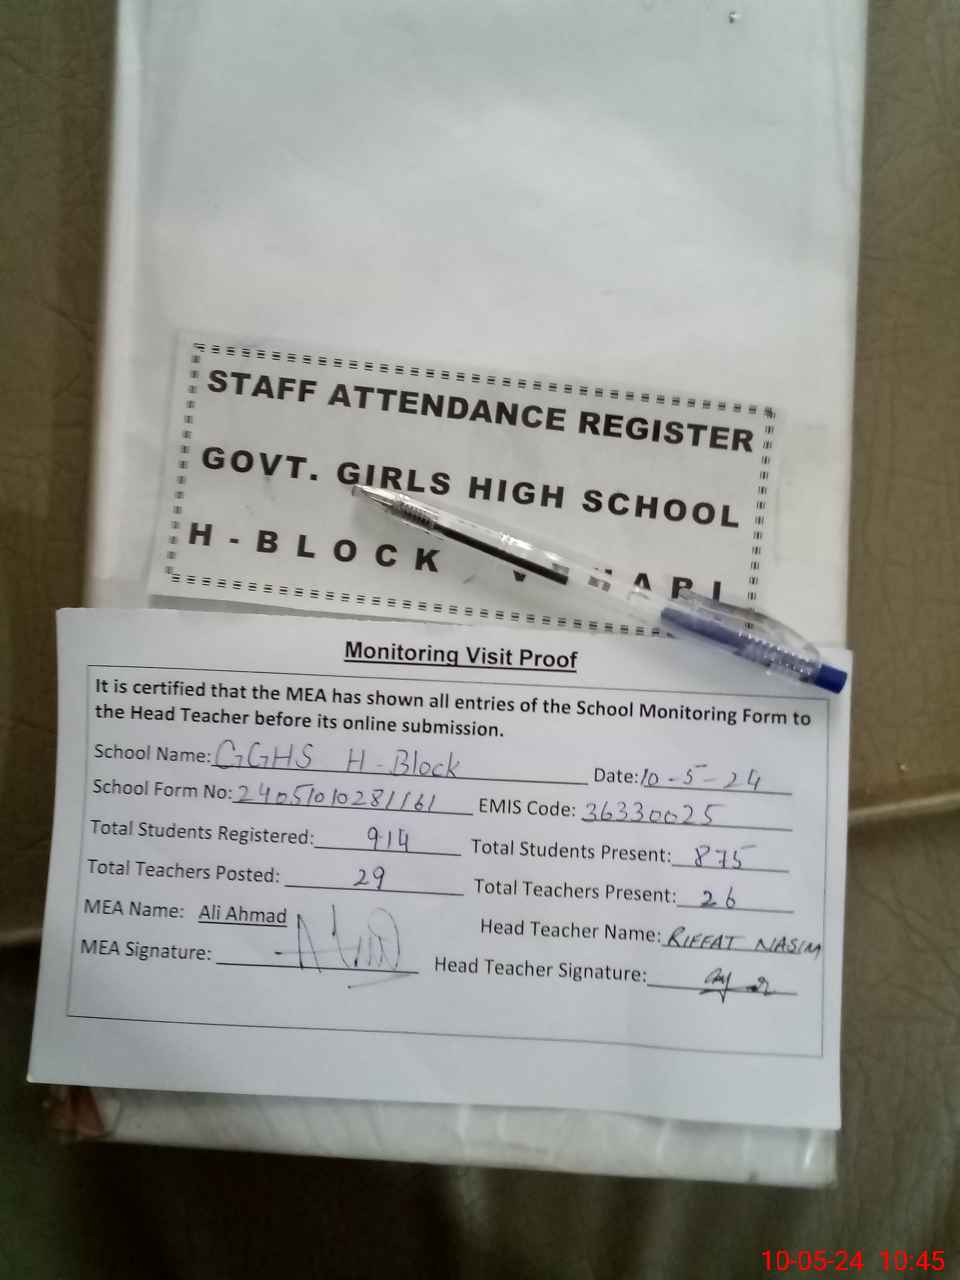 STAFF ATTENDANCE REGISTER
GOVT. GIRLS HIGH SCHOOL
H - BLOCK
Monitoring Visit Proof
It is certified that the MEA has shown all entries of the School Monitoring Form to
the Head Teacher before its online submission.
School Name: GGHS H-Block Date: 10-5-24
School Form No: 24051010281161 EMIS Code: 36330025
Total Students Registered: 914 Total Students Present: 875
Total Teachers Posted: 29 Total Teachers Present: 26
MEA Name: Ali Ahmad Head Teacher Name: RIFFAT NASIM
MEA Signature: Head Teacher Signature:
10-05-24 10:45